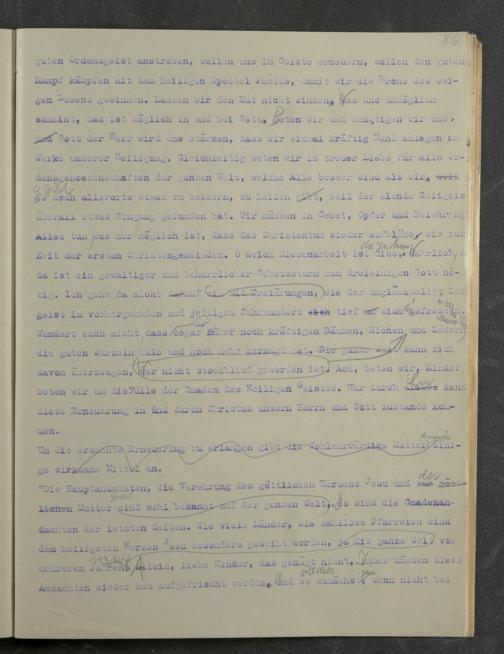 86
guten Ordensgeist anstreben, wollen uns im Geiste erneuern, wollen den guten
Kampf kämpfen mit dem heiligen Apostel Paulus, damit wir die Krone des ewi-
gen Lebens gewinnen. Lassen wir den Mut nicht sinken, Was uns unmöglich
scheint, das ist möglich in und bei Gott. Beten wir und demütigen wir uns,
und Gott der Herr wird uns stärken, dass wir einmal kräftig Hand anlegen am
Werke unserer Heiligung. Gleichzeitig beten wir in treuer Liebe für alle Or-
densgenossenschaften der ganzen Welt, welche Alle besser sind als wir,
es doch allsorts etwas zu bessern, zu heilen gibt, weil der elende Zeitgeis
überall etwas Eingang gefunden hat. Wir müssen in Gebet, Opfer und Belehrung
Alles tun was nur möglich ist, dass das Christentum wieder aufblühe, wie zur
Zeit der ersten Christengemeinden. O welch Riesenarbeit ist dies, Wahrlich,
da ist ein gewaltiger und beharrlicher Gebetssturm zum dreieinigen Gott nö-
tig. Ich gehe da nicht darauf ein mit Erklärungen, wie der unglückselige
geist im vorhergehenden und jetzigen Jahrhundert sich tief sich
Wundert euch nicht, dass sogar über noch kräftigen Bäumen, Eichen und Zedern
die guten Wurzeln halb und noch mehr zernagt hat. Die ganze Welt kann sich
davon überzeugen, Wer nicht stockblind geworden ist. Ach, beten wir, Kinder,
beten wir um die Fülle der Gnaden des Heiligen Geistes. Nur durch dieses kann
diese Erneuerung in und durch Christus unsern Herrn und Gott zustande kom-
men.
Um die ersehnte Erneuerung zu erlangen gibt die Wohlehrwürdige Mutter eini-
ge wirksame Mittel an.
"Die Hauptandachten, die Verehrung des göttlichen Herzens Jesu und der gött-
lichen Mutter sind wohl bekannt auf der ganzen Welt, Es sind die Gnadenan-
dachten der letzten Zeiten. Wie viele Länder, wie zahllose Pfarreien sind
dem heiligsten Herzen Jesu besonders geweiht worden, ja die ganze Welt vor
mehreren Jahren. Allein, liebe Kinder, das genügt nicht, Immer müssen diese
Andachten wieder neu aufgefrischt werden, Und wo zunächst, wenn nicht bei